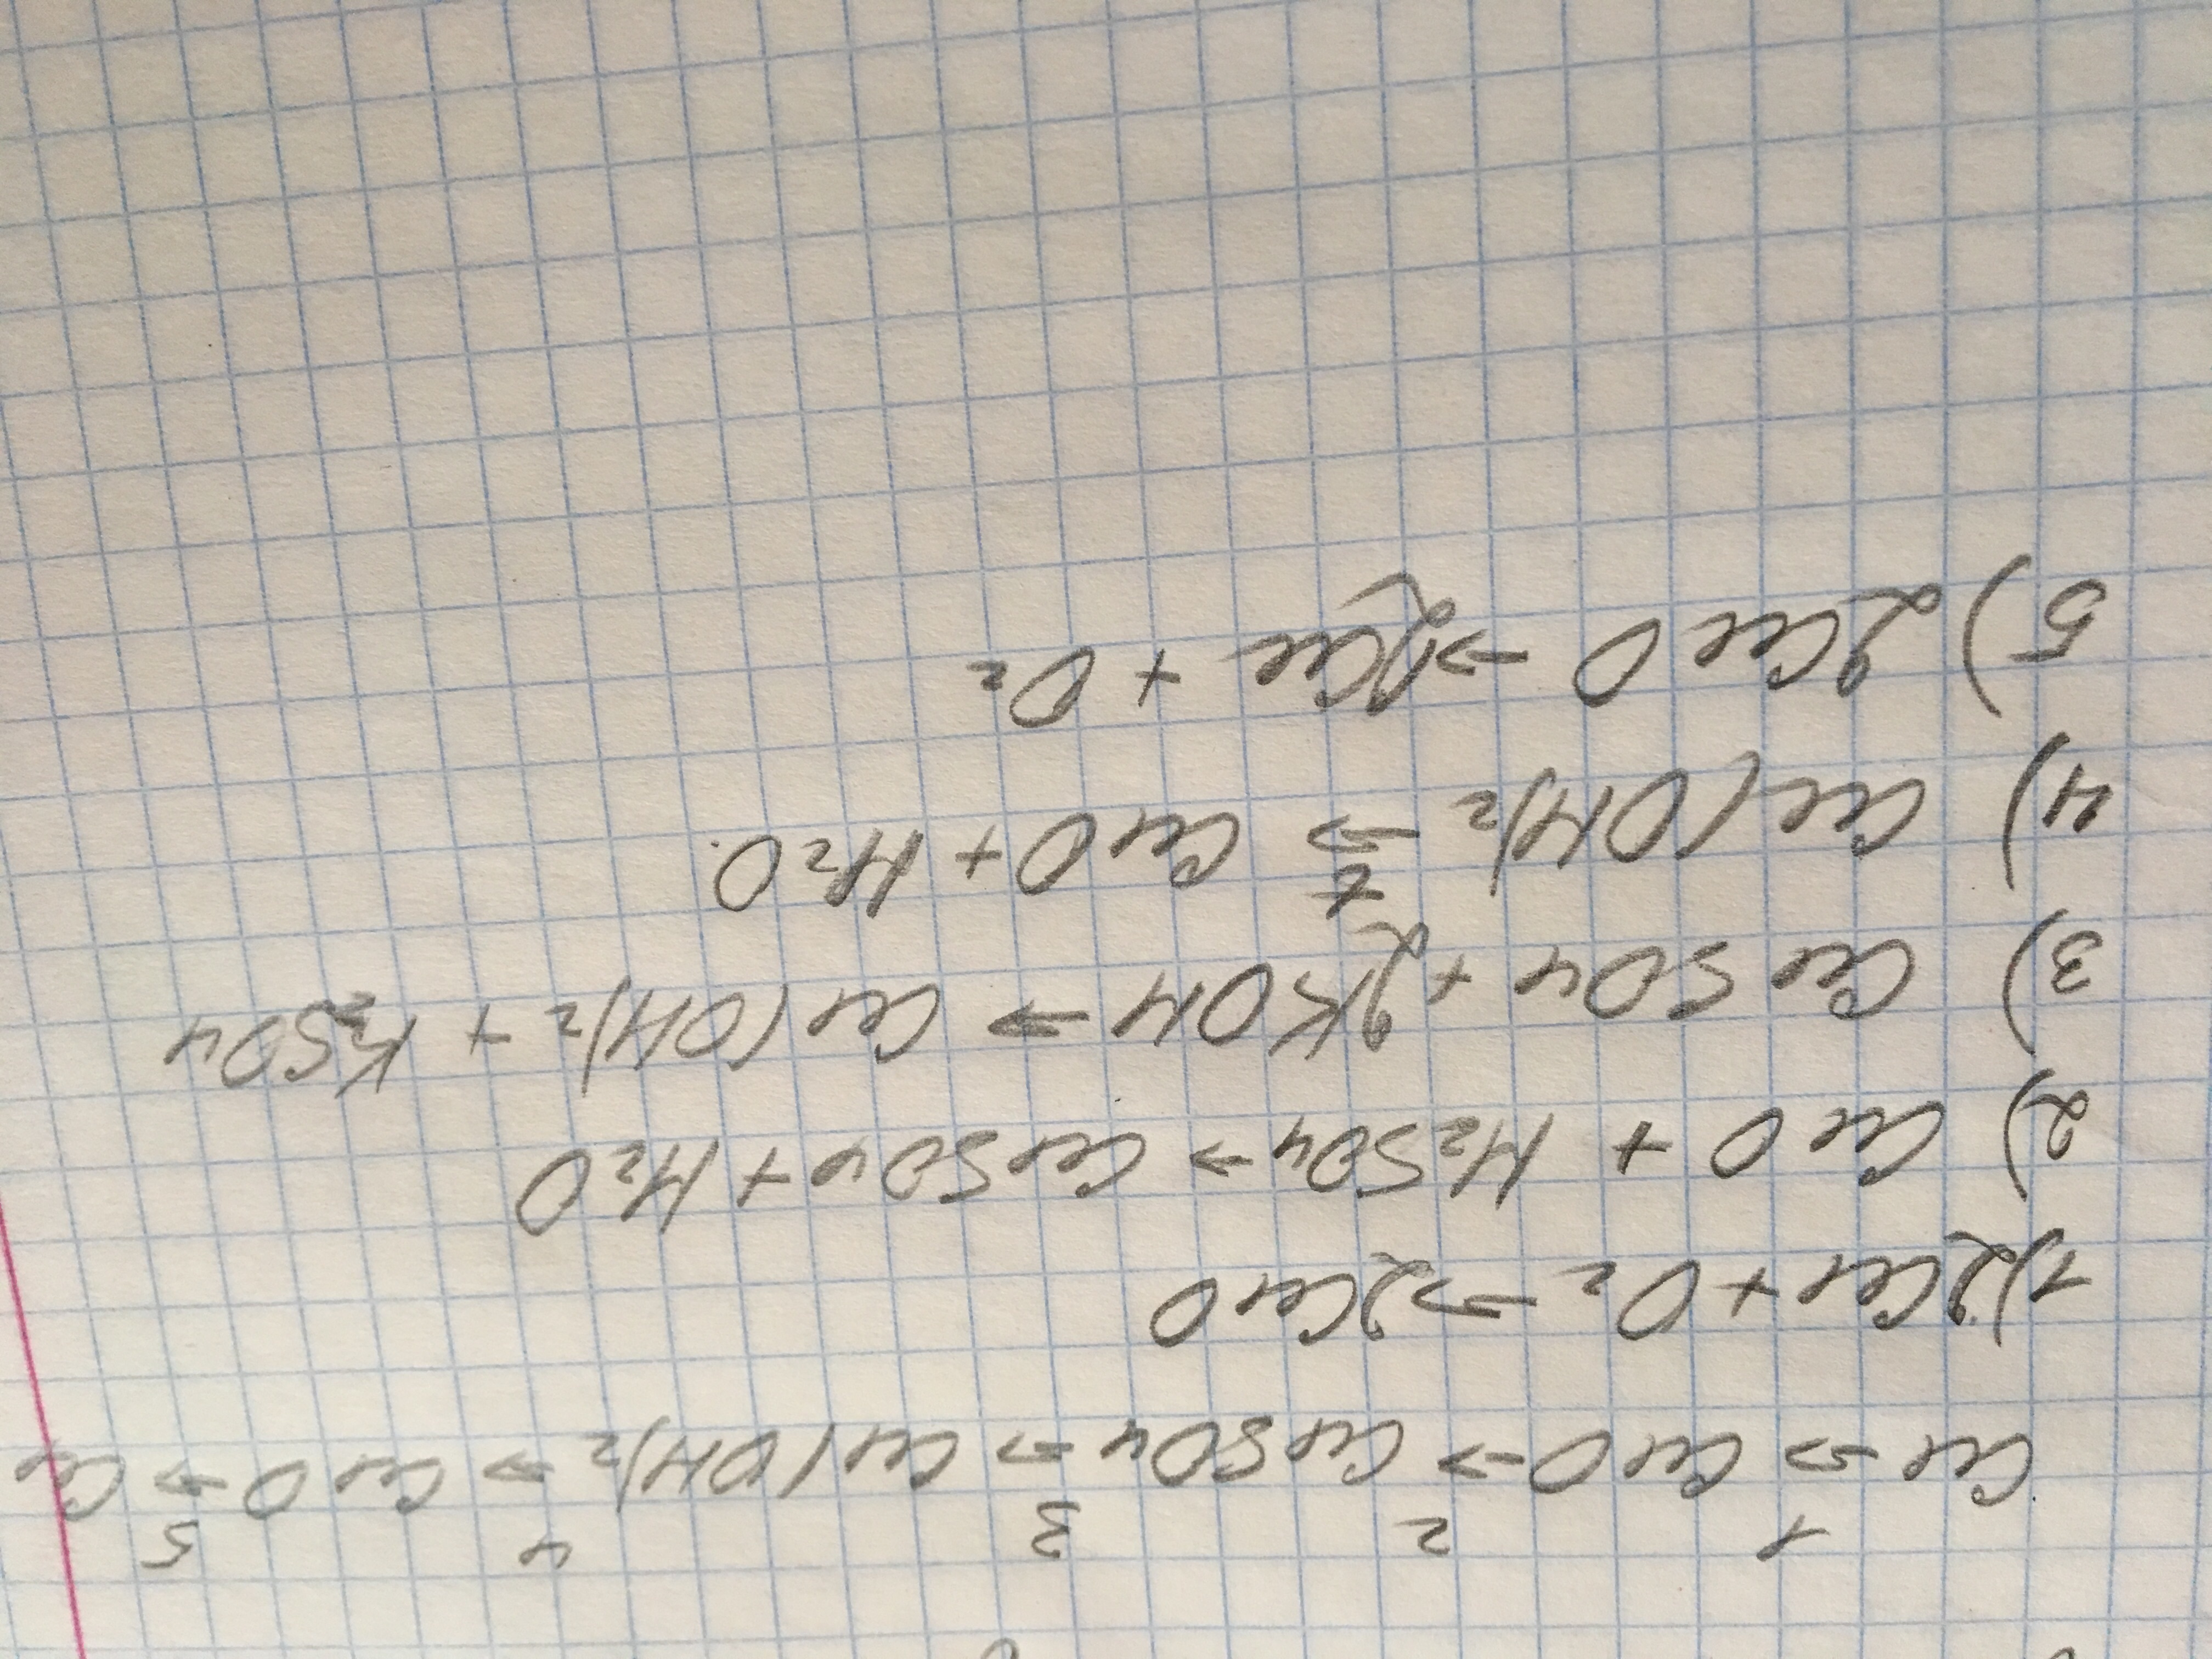 1 2 3 4 5
Cu → CuO → CuSO4 → Cu(OH)2 → CuO → Cu
1) 2Cu + O2 → 2CuO
2) CuO + H2SO4 → CuSO4 + H2O
3) CuSO4 + 2KOH → Cu(OH)2 + K2SO4
4) Cu(OH)2 t→ CuO + H2O.
5) 2CuO → 2Cu + O2